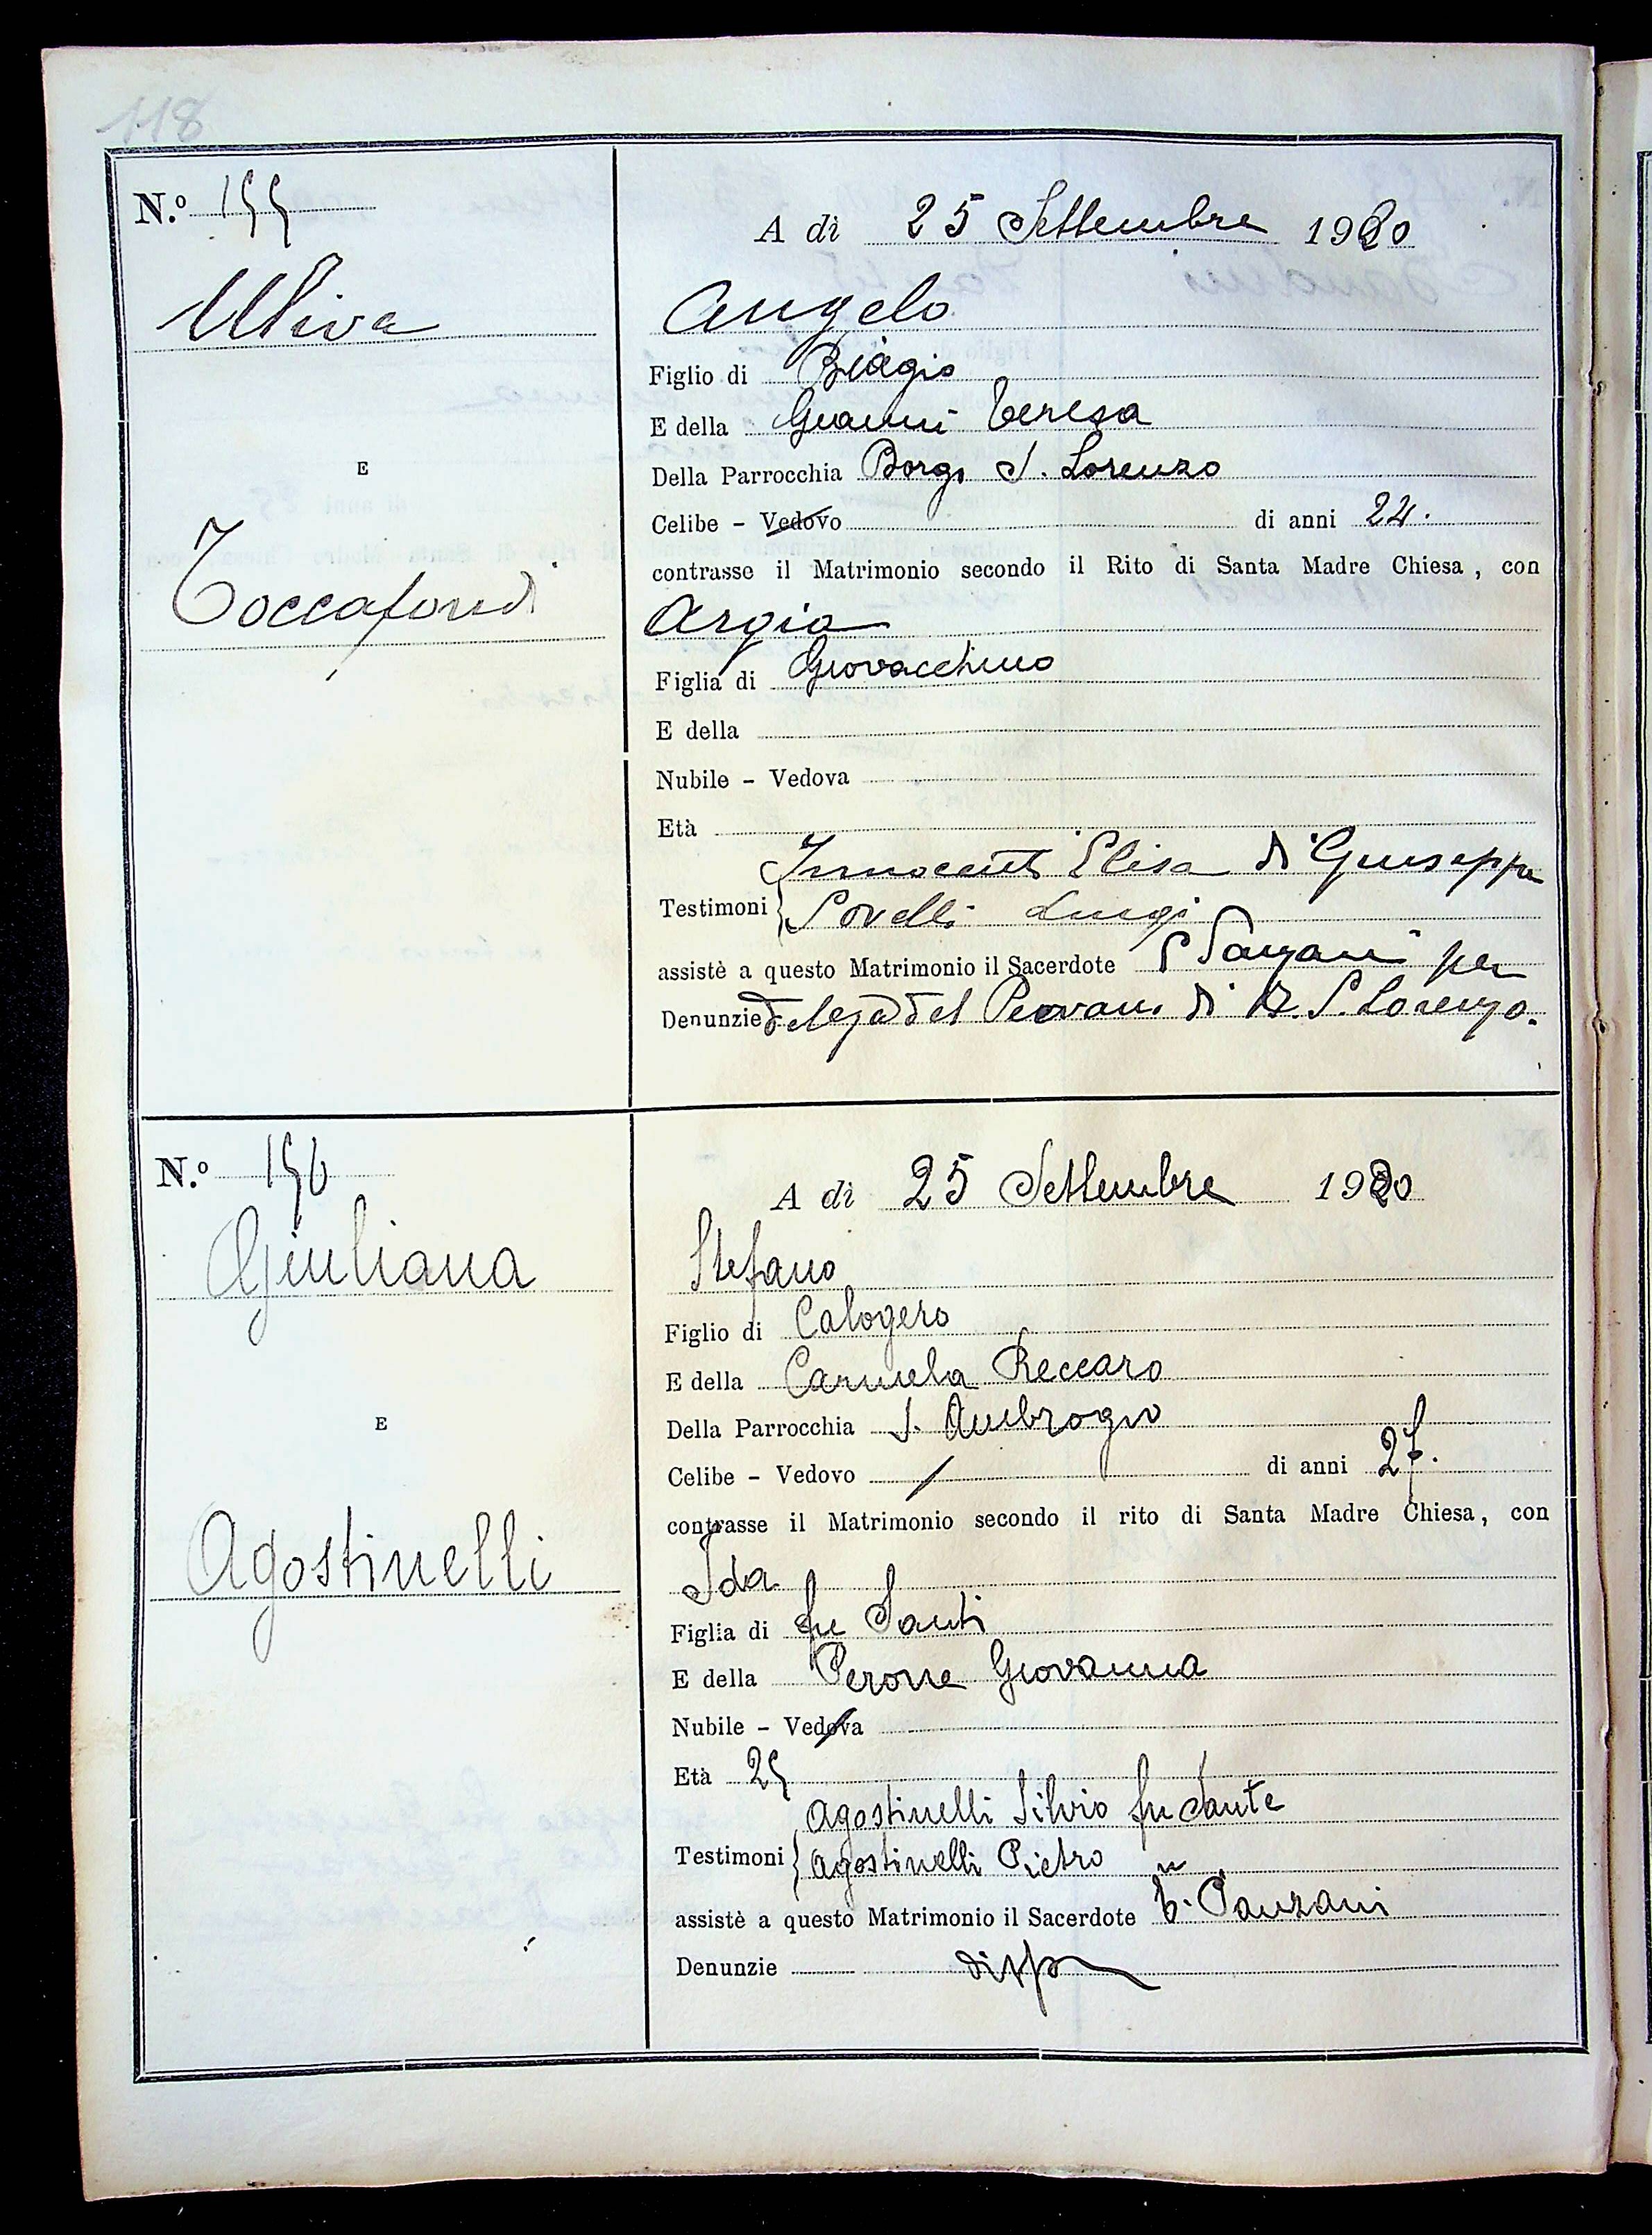 118
N.º 155
A dì 25 Settembre 1920
Uliva
Angelo
Figlio di Biagio
E della Gianni Teresa
E
Della Parrocchia Borgo S. Lorenzo
Celibe - Vedovo di anni 24.
contrasse il Matrimonio secondo il Rito di Santa Madre Chiesa, con
Toccafondi
Argia
Figlia di Giovacchino
E della
Nubile - Vedova
Età
Innocenti Elisa di Giuseppe
Testimoni Lovelli Luigi
assistè a questo Matrimonio il Sacerdote Panzani per
Denunzie delega del Piovano di B. S. Lorenzo.
N.º 156
A dì 25 Settembre 1920
Giuliana
Stefano
Figlio di Calogero
E della Carmela Reccaro
E
Della Parrocchia S. Ambrogio
Celibe - Vedovo di anni 27.
contrasse il Matrimonio secondo il rito di Santa Madre Chiesa, con
Agostinelli
Ida
Figlia di fu Santi
E della Perone Giovanna
Nubile - Vedova
Età 25
Agostinelli Silvio fu Sante
Testimoni Agostinelli Pietro "
assistè a questo Matrimonio il Sacerdote T. Panzani
Denunzie disp